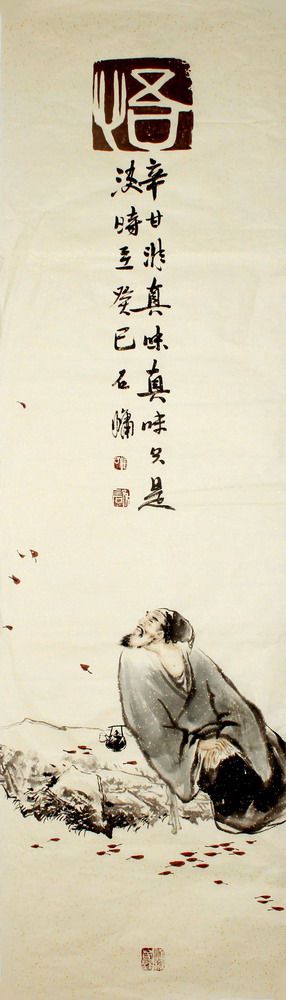 悟
辛甘非真味真味只是
淡時在癸巳石